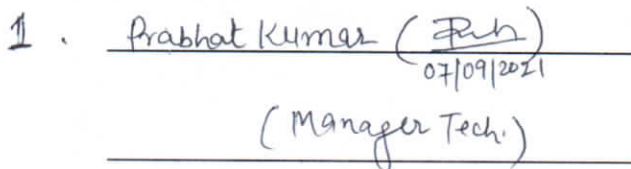 1. Prabhat Kumar ( )
07/09/2021
(Manager Tech.)